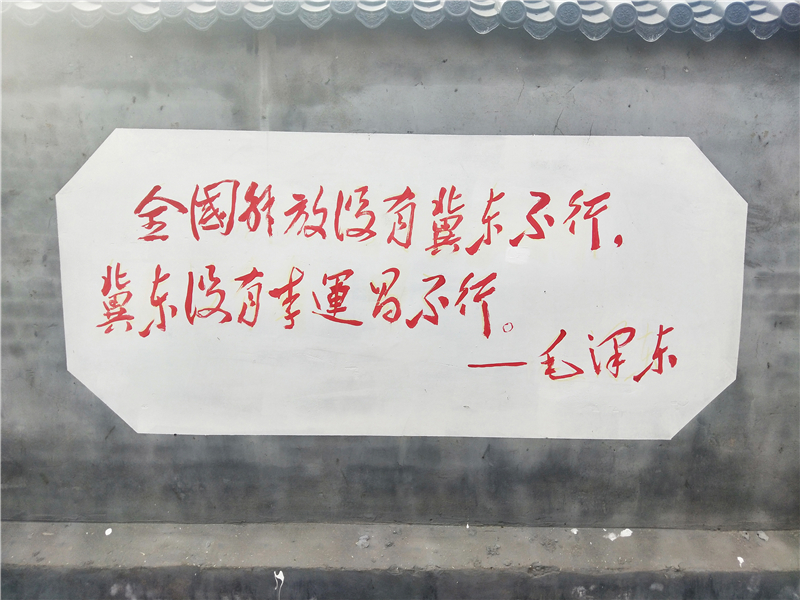 全國解放沒有冀东不行，
冀东沒有李運昌不行。
—毛泽东